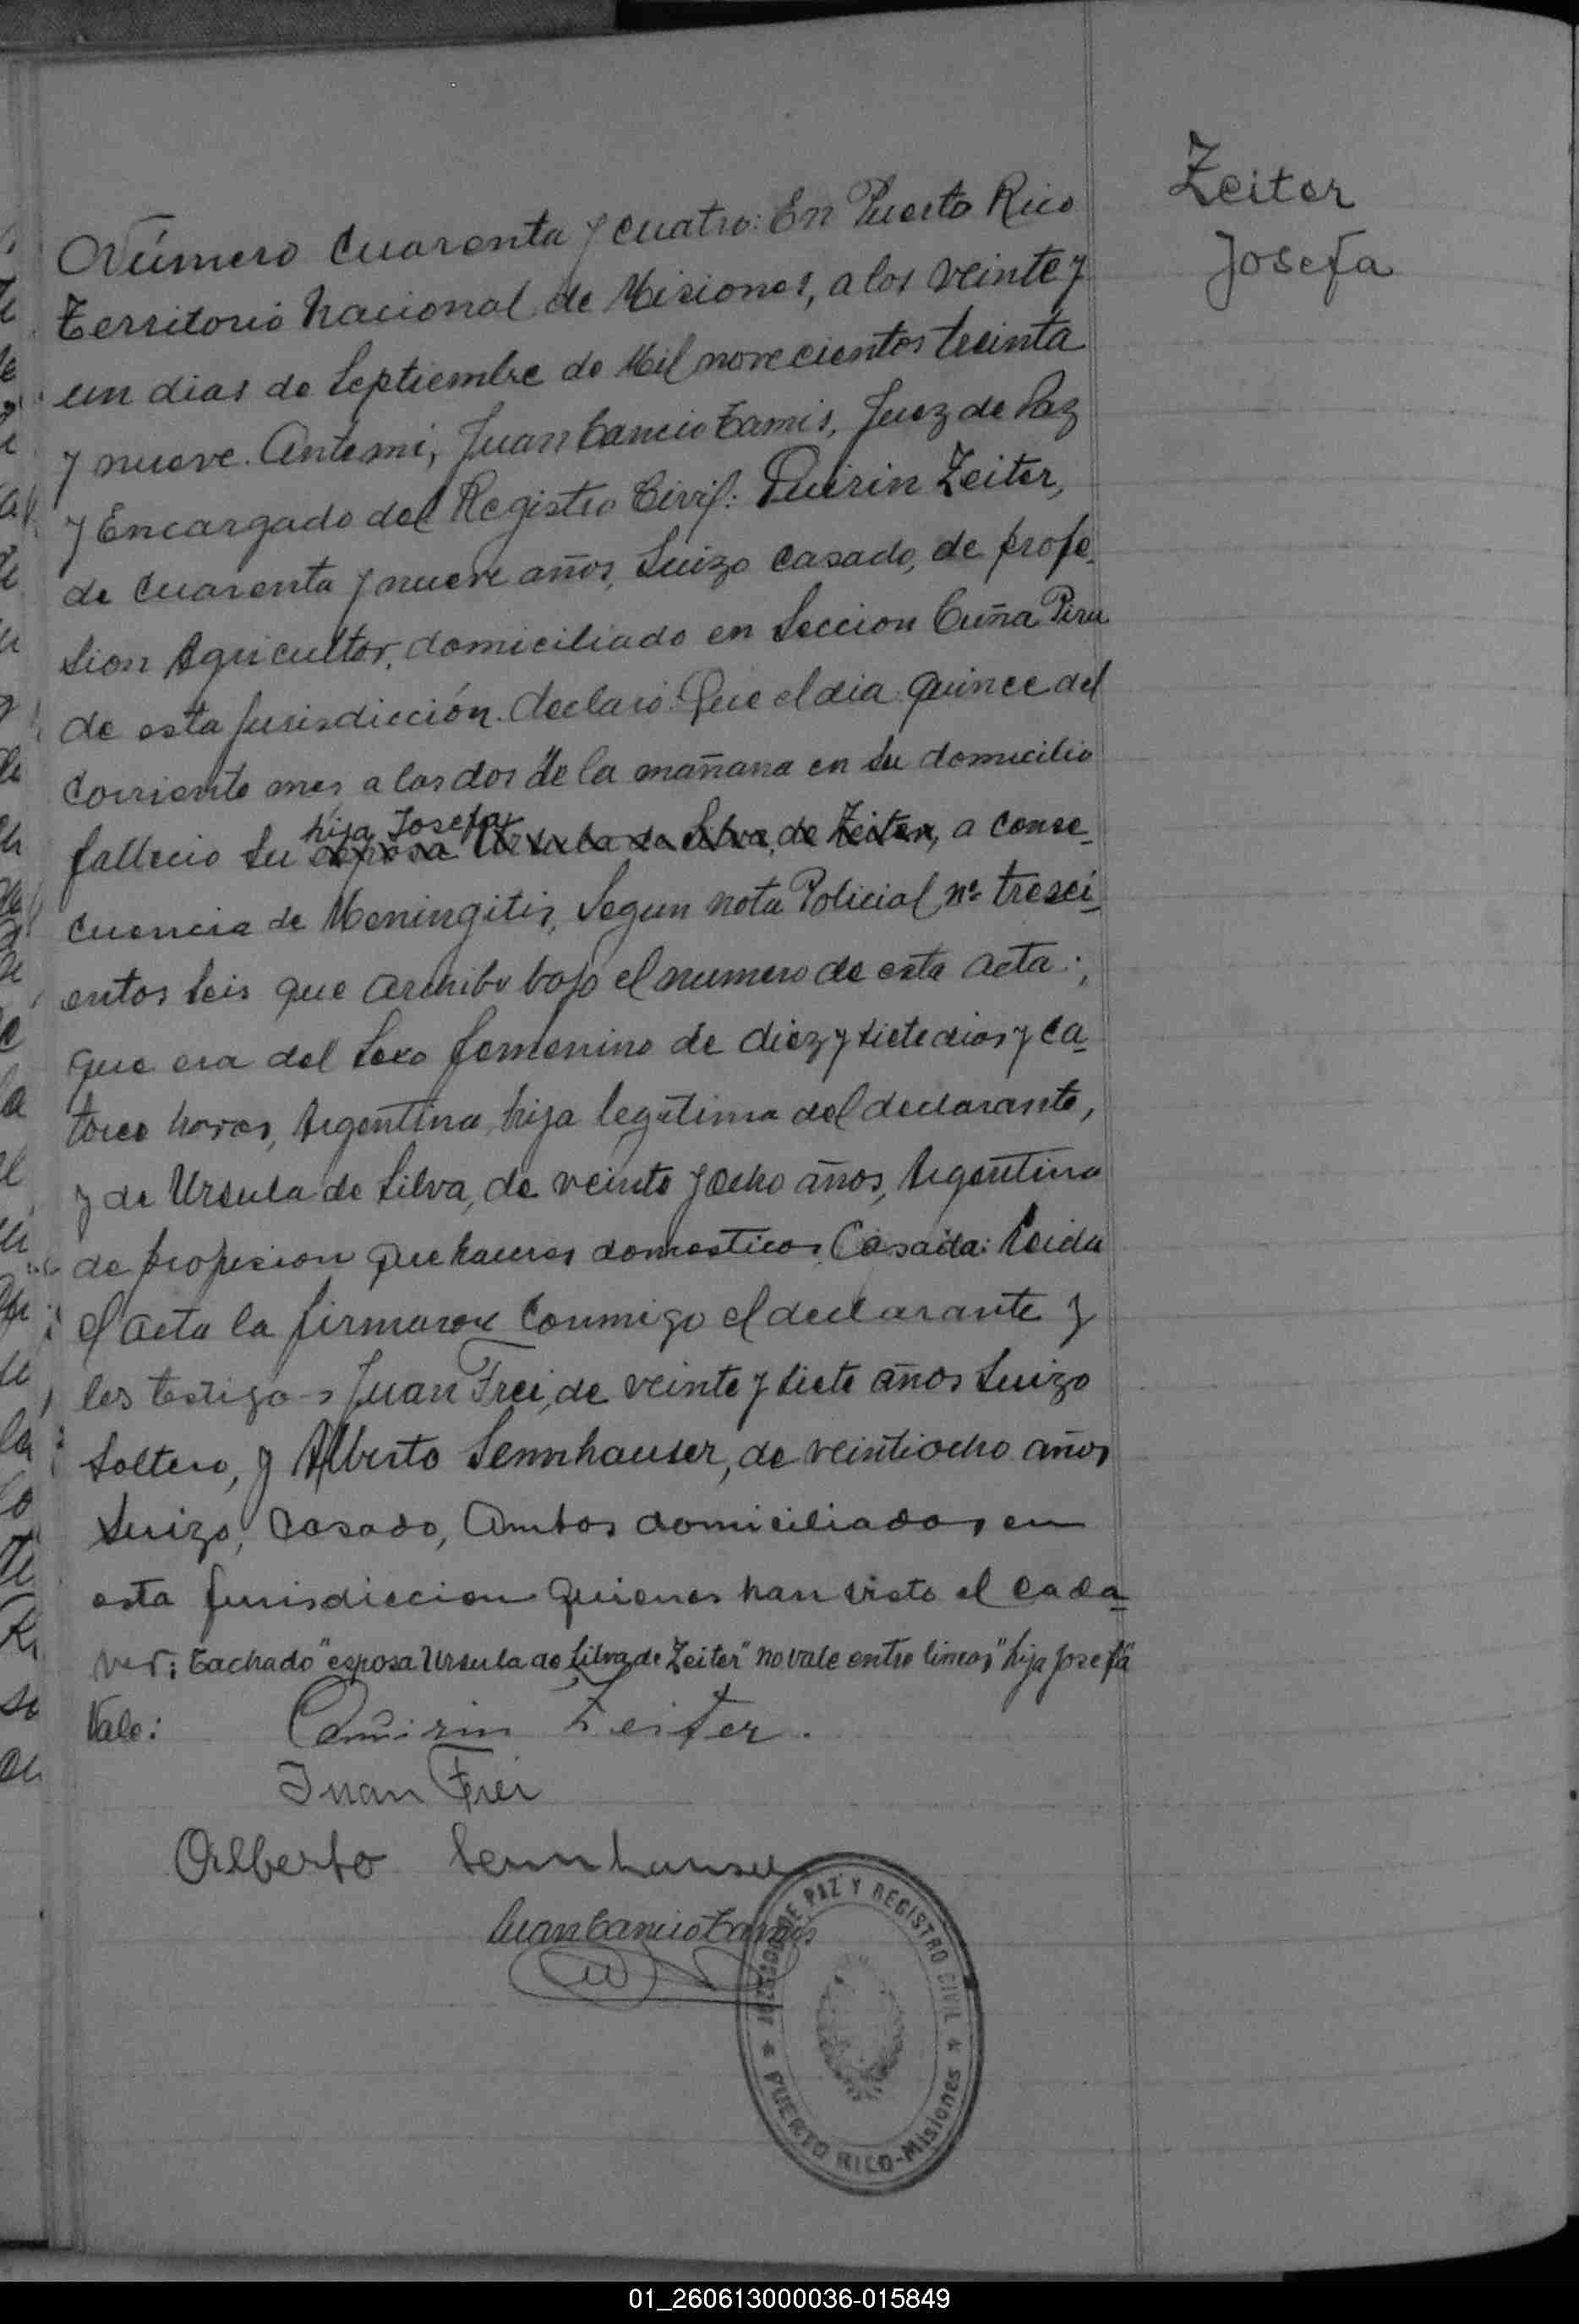 Zeiter
Josefa
Número cuarenta y cuatro: En Puerto Rico
Territorio Nacional de Misiones, a los veinte y
un dias de Septiembre de Mil novecientos treinta
y nueve. Ante mi, Juan Cancio Tamis, Juez de Paz
y Encargado del Registro Civil: Quirin Zeiter,
de cuarenta y nueve años, Suizo casado, de profe-
sion Agricultor, domiciliado en Seccion Cuña Piru
de esta Jurisdicción. declaró: Que el dia quince del
corriente mes a las dos de la mañana en su domicilio
hija Josefa
fallecio su esposa Ursula de Silva de Zeiter, a conse-
cuencia de Meningitis, segun nota Policial nº tresci-
entos seis que archibo bajo el numero de esta acta:,
que era del sexo femenino de diez y siete dias y ca-
torce horas, Argentina, hija legitima del declarante,
y de Ursula de Silva, de veinte y ocho años, Argentina
de profesion quehaceres domesticos, Casada: Leida
el acta la firmaron conmigo el declarante y
los testigos Juan Frei, de veinte y siete años Suizo
soltero, y Alberto Sennhauser, de veintiocho años
Suizo, casado, ambos domiciliados en
esta Jurisdiccion quienes han visto el cada-
ver: Tachado "esposa Ursula de Silva de Zeiter" no vale entre lineas "hija Josefa"
Vale:
Quirin Zeiter.
Juan Frei
Alberto Sennhauser
Juan Cancio Tamis
JUZGADO DE PAZ Y REGISTRO CIVIL
* PUERTO RICO-Misiones *
01_260613000036-015849